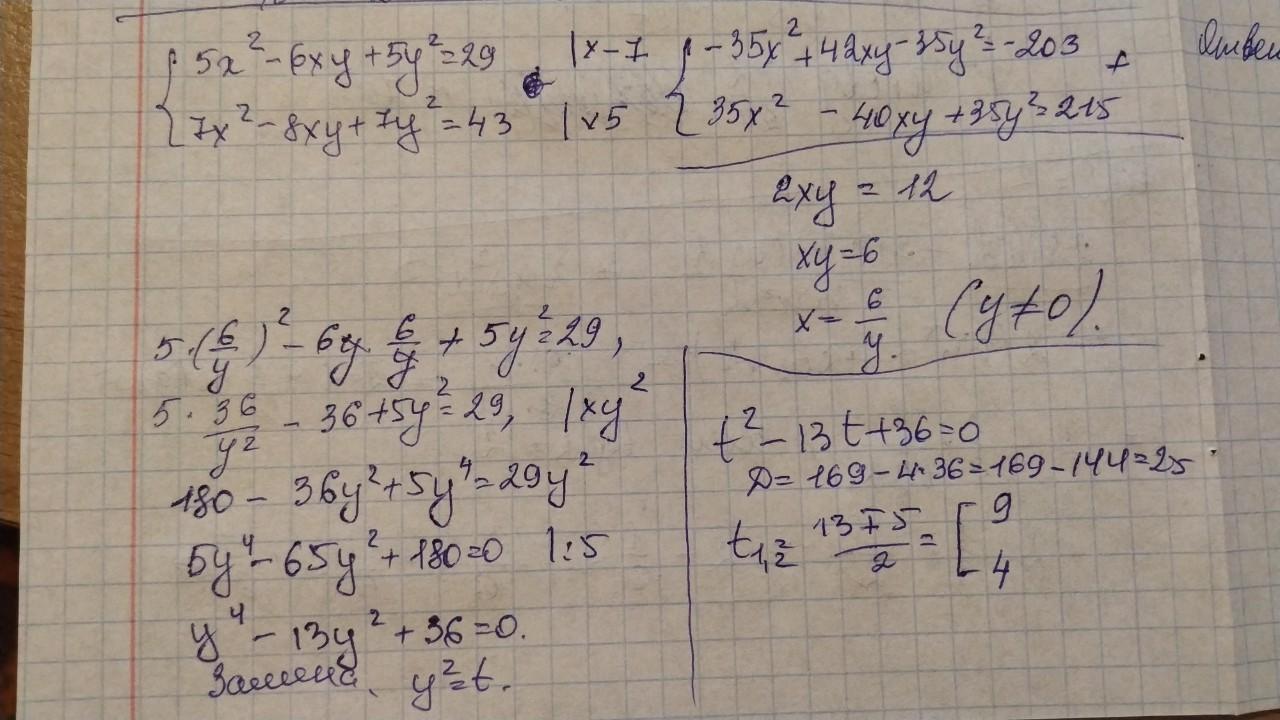 5x² - 6xy + 5y² = 29 | x - 7
7x² - 8xy + 7y² = 43 | x 5
- 35x² + 42xy - 35y² = -203 +
35x² - 40xy + 35y² = 215
2xy = 12
xy = 6
x = 6/y (y ≠ 0).
5·(6/y)² - 6y · 6/y + 5y² = 29,
5 · 36/y² - 36 + 5y² = 29, | x y²
180 - 36y² + 5y⁴ = 29y²
5y⁴ - 65y² + 180 = 0 | : 5
y⁴ - 13y² + 36 = 0.
Замена. y² = t.
t² - 13t + 36 = 0
D = 169 - 4·36 = 169 - 144 = 25
t₁,₂ = (13 ∓ 5)/2 = [ 9
4